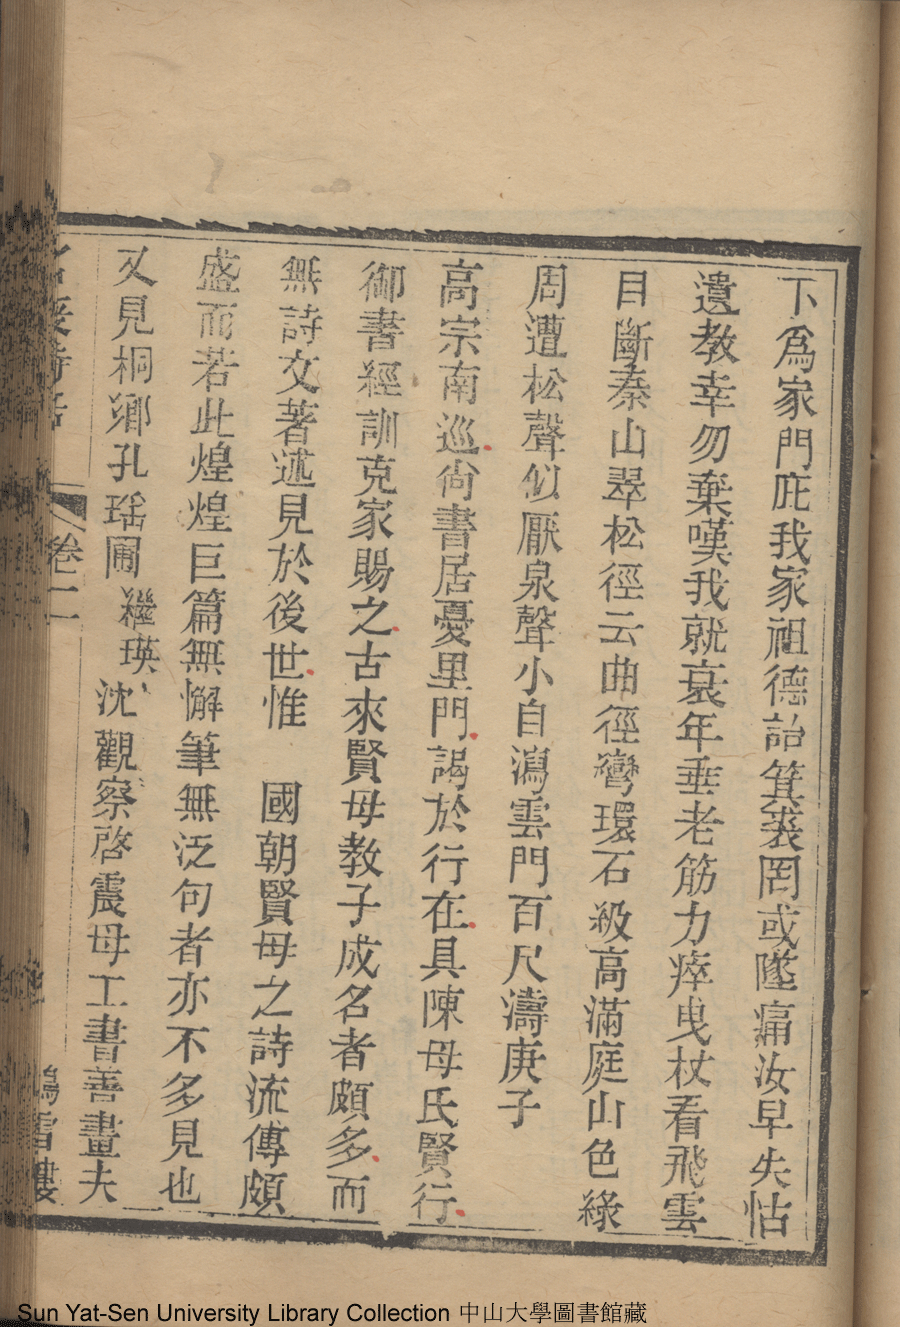 下爲家門庇我家祖德詒箕裘罔或墜痛汝早失怙
遺教幸勿棄嘆我就衰年垂老筋力瘁曳杖看飛雲
目斷秦山翠松徑云曲徑彎環石級高滿庭山色綠
周遭松聲似厭泉聲小自瀉雲門百尺濤庚子
高宗南巡尙書居憂里門謁於行在具陳母氏賢行
御書經訓克家賜之古來賢母教子成名者頗多而
無詩文著述見於後世惟　國朝賢母之詩流傳頗
盛而若此煌煌巨篇無懈筆無泛句者亦不多見也
又見桐鄉孔瑤圃繼瑛沈觀察啓震母工書善畫夫
卷二
雪樓
Sun Yat-Sen University Library Collection 中山大學圖書館藏